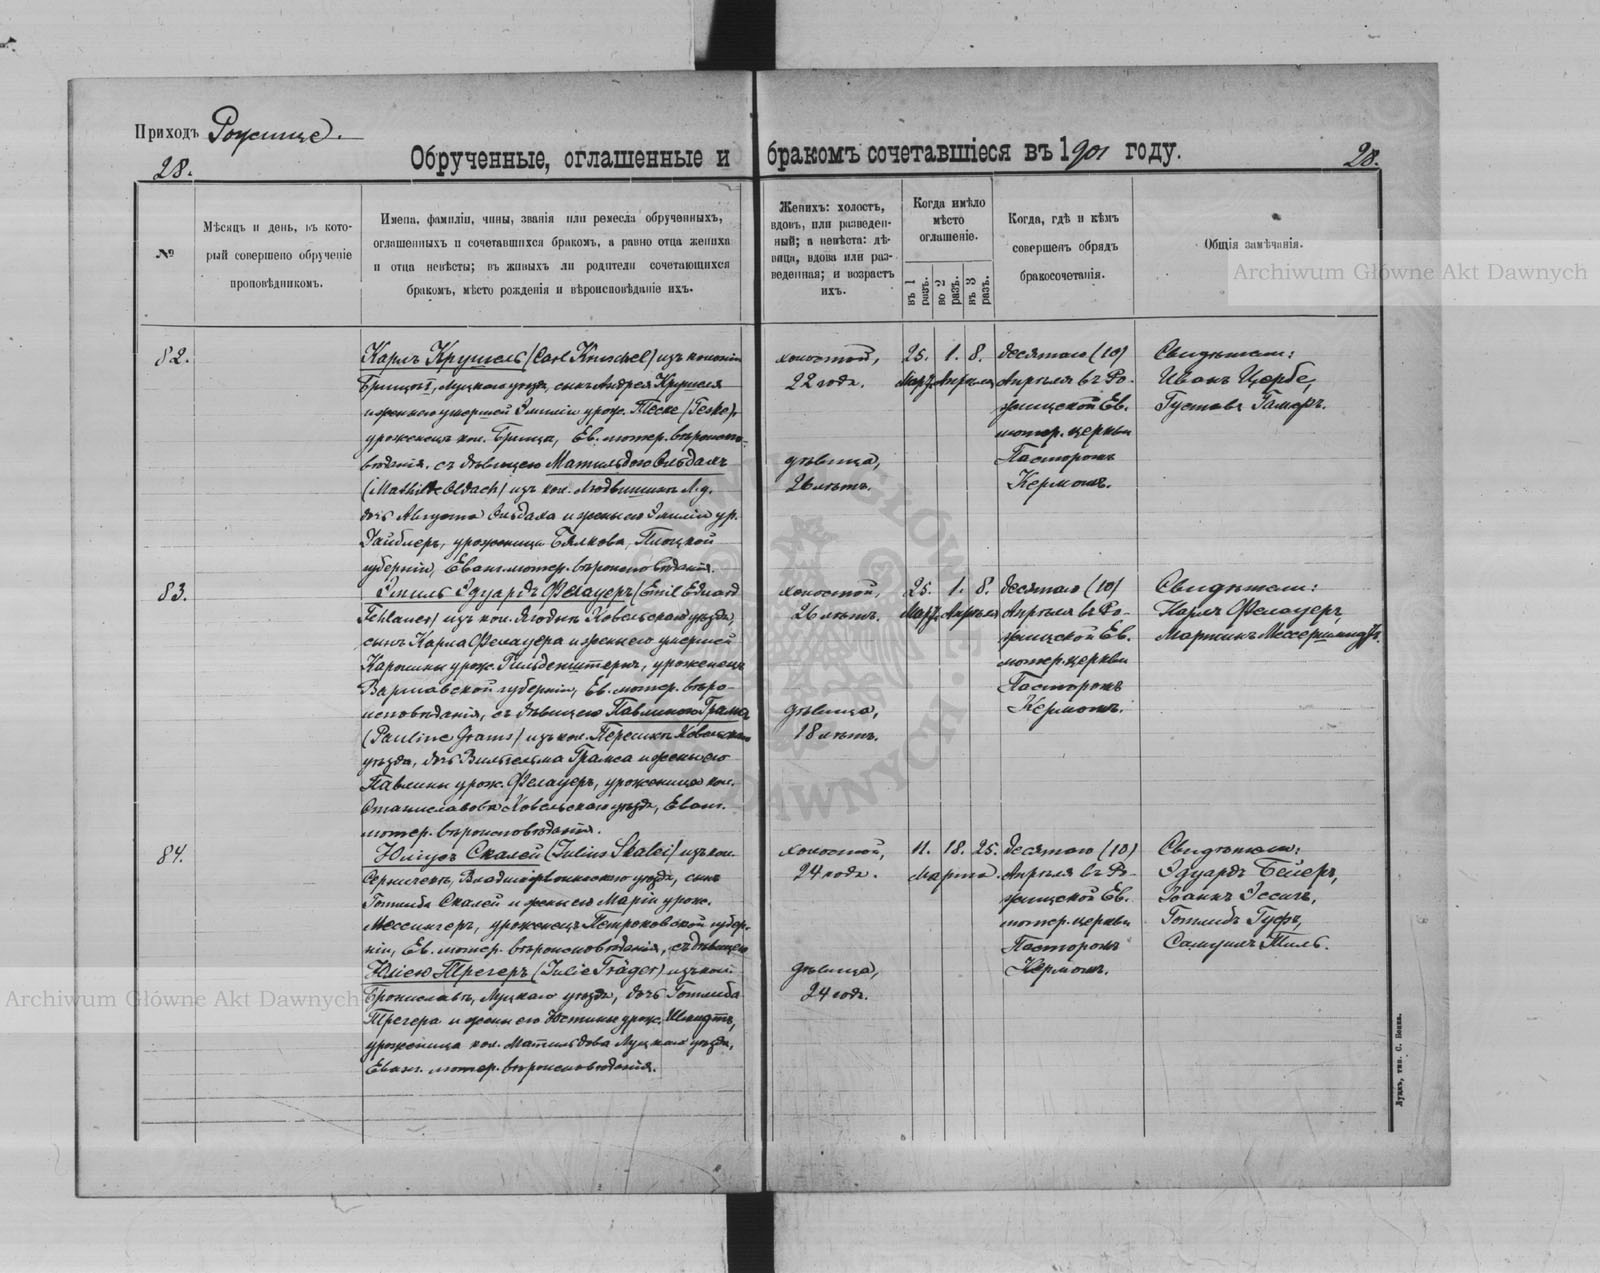 Приходъ Рожище.
28.
Обрученные, оглашенные и бракомъ сочетавшіеся въ 1901 году.
28.
№
Мѣсяцъ и день, въ кото-
рый совершено обрученіе
проповѣдникомъ.
Имена, фамиліи, чины, званія или ремесла обрученныхъ,
оглашенныхъ и сочетавшихся бракомъ, а равно отца жениха
и отца невѣсты; въ живыхъ ли родители сочетающихся
бракомъ, мѣсто рожденія и вѣроисповѣданіе ихъ.
Женихъ: холостъ,
вдовъ, или разведен-
ный; а невѣста: дѣ-
вица, вдова или раз-
веденная; и возрастъ
ихъ.
Когда имѣло
мѣсто
оглашеніе.
въ 1 разъ.
во 2 разъ.
въ 3 разъ.
Когда, гдѣ и кѣмъ
совершенъ обрядъ
бракосочетанія.
Общія замѣчанія.
Archiwum Główne Akt Dawnych
82.
Карлъ Крушель (Carl Kruschel) изъ колоніи
Луцкаго уѣзда, сынъ Андрея Крушеля
и жены его умершей Эмиліи урож. Теске (Teske),
уроженецъ кол. Ев. лютер. вѣроиспо-
вѣданія, съ дѣвицею Матильдою Ольдахъ
(Mathilde Oldach) изъ кол. Л. у.
дочь Августа Ольдаха и жены его Эмиліи ур.
Дайблеръ, уроженица Бялкова, Плоцкой
губерніи, Еванг. лютер. вѣроисповѣданія.
холостой,
22 года.
дѣвица,
26 лѣтъ.
25. 1. 8.
Марта Апрѣля
десятаго (10)
Апрѣля въ Ро-
жищской Ев.
лютер. церкви
Пасторомъ
Кермомъ.
Свидѣтели:
Иванъ Цербе,
Густавъ Гамеръ.
83.
Эмиль Эдуардъ Фелауеръ (Emil Eduard
Fehlauer) изъ кол. Ягодинъ Ковельскаго уѣзда,
сынъ Карла Фелауера и жены его умершей
Каролины урож. Гильденштернъ, уроженецъ
Варшавской губерніи, Ев. лютер. вѣро-
исповѣданія, съ дѣвицею Павлиною Грамсъ
(Pauline Grams) изъ кол. Ковельскаго
уѣзда, дочь Вильгельма Грамса и жены его
Павлины урож. Фелауеръ, уроженица кол.
Станиславовъ Ковельскаго уѣзда, Еванг.
лютер. вѣроисповѣданія.
холостой,
26 лѣтъ.
дѣвица,
18 лѣтъ.
25. 1. 8.
Марта Апрѣля
десятаго (10)
Апрѣля въ Ро-
жищской Ев.
лютер. церкви
Пасторомъ
Кермомъ.
Свидѣтели:
Карлъ Фелауеръ,
Мартинъ Мессершмидтъ.
84.
Юліусъ Скалей (Julius Skalei) изъ кол.
Владимірволынскаго уѣзда, сынъ
Готлиба Скалей и жены его Маріи урож.
Мессингеръ, уроженецъ Петроковской губер-
ніи, Ев. лютер. вѣроисповѣданія, съ дѣвицею
Юліею Трегеръ (Julie Träger) изъ кол.
Брониславъ, Луцкаго уѣзда, дочь Готлиба
Трегера и жены его Юстины урож. Шмидтъ,
уроженица кол. Матильдова Луцкаго уѣзда,
Еванг. лютер. вѣроисповѣданія.
холостой,
24 года.
дѣвица,
24 год.
11. 18. 25.
Марта.
десятаго (10)
Апрѣля въ Ро-
жищской Ев.
лютер. церкви
Пасторомъ
Кермомъ.
Свидѣтели:
Эдуардъ Бейеръ,
Іоаннъ Эссигъ,
Готлибъ Гусъ,
Самуилъ Тиль.
Archiwum Główne Akt Dawnych
Луцкъ, тип. С. Бонка.